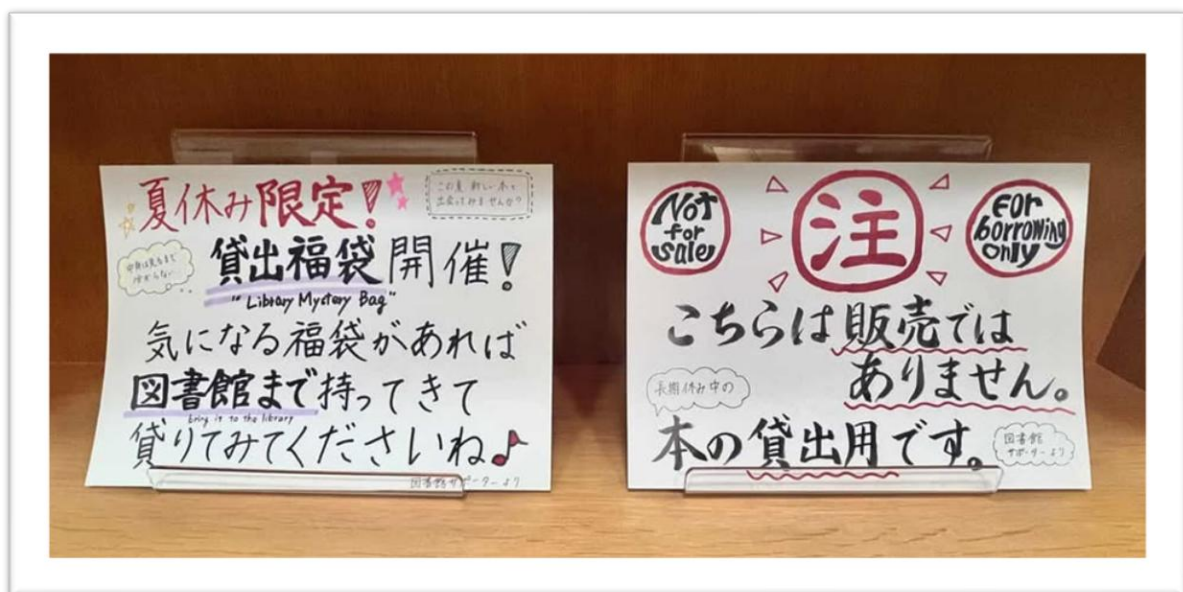 夏休み限定!
この夏 新しい本と
出会ってみませんか?
中身は見るまで
分からない...
貸出福袋開催!
"Library Mystery Bag"
気になる福袋があれば
図書館まで持ってきて
bring it to the library
貸りてみてくださいね♪
図書館サポーターより
Not
for
sale
注
For
borrowing
only
こちらは販売では
ありません。
長期休み中の
本の貸出用です。
図書館
サポーターより